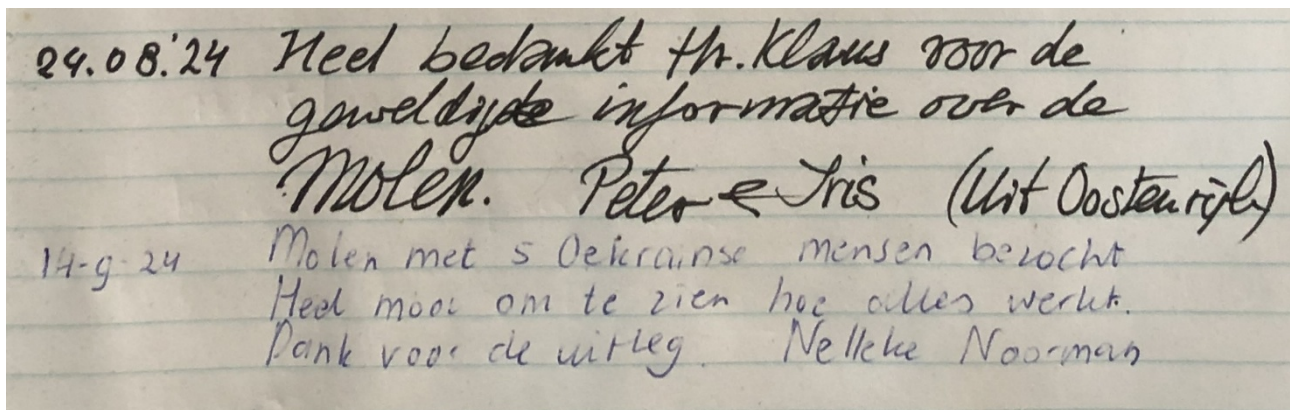 24.08.'24 Heel bedankt Hr. Klaus voor de
geweldige informatie over de
Molen. Peter & Iris (Uit Oostenrijk)
14-9-24 Molen met 5 Oekrainse mensen bezocht
Heel mooi om te zien hoe alles werkt.
Dank voor de uitleg. Nelleke Noorman